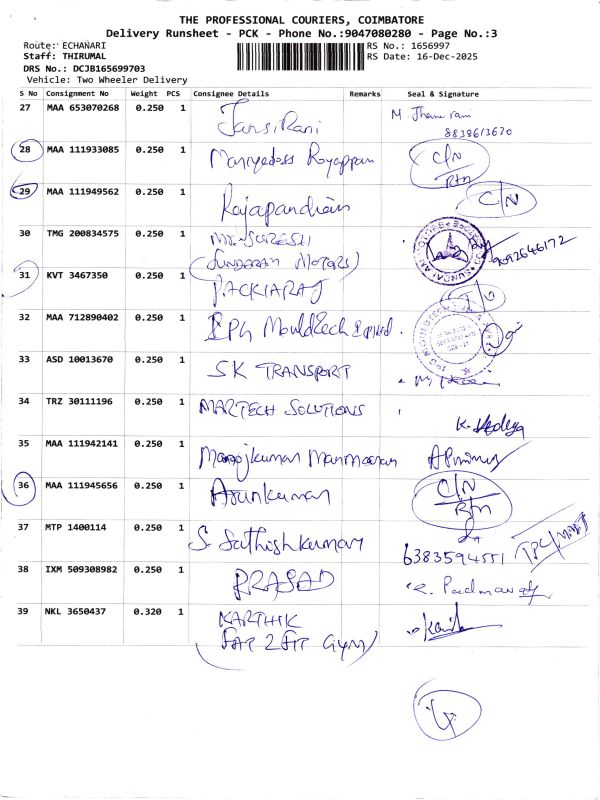 THE PROFESSIONAL COURIERS, COIMBATORE
Delivery Runsheet - PCK - Phone No.:9047080280 - Page No.:3
Route: ECHANARI RS No.: 1656997
Staff: THIRUMAL RS Date: 16-Dec-2025
DRS No.: DCJB165699703
Vehicle: Two Wheeler Delivery
S No Consignment No Weight PCS Consignee Details Remarks Seal & Signature
27 MAA 653070268 0.250 1 Jansi Rani
8838613630
28 MAA 111933085 0.250 1 Mariyadoss Rayappan C/N
Rtn
29 MAA 111949562 0.250 1 Rajapandian C/N
30 TMG 200834575 0.250 1 Mr. SURESH
(SUNDARAM MOTORS) 9092646172
31 KVT 3467350 0.250 1 PACKIARAJ
32 MAA 712890402 0.250 1 EPG Mouldtech
33 ASD 10013670 0.250 1 SK TRANSPORT
34 TRZ 30111196 0.250 1 MARTECH SOLUTIONS
35 MAA 111942141 0.250 1 Manojkumar
36 MAA 111945656 0.250 1 Arunkumar C/N
Rtn
37 MTP 1400114 0.250 1 S. Sathishkumar
6383594551
38 IXM 509308982 0.250 1 PRASAD
39 NKL 3650437 0.320 1 KARTHIK
FAT 2 FIT GYM)